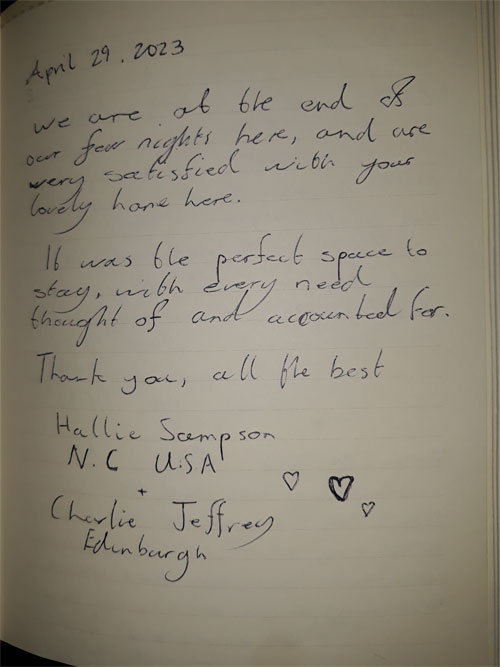 April 29, 2023
we are at the end of
our few nights here, and are
very satisfied with your
lovely home here.
It was the perfect space to
stay, with every need
thought of and accounted for.
Thank you, all the best
Hallie Sampson
N.C U.S.A
+
Charlie Jeffrey
Edinburgh